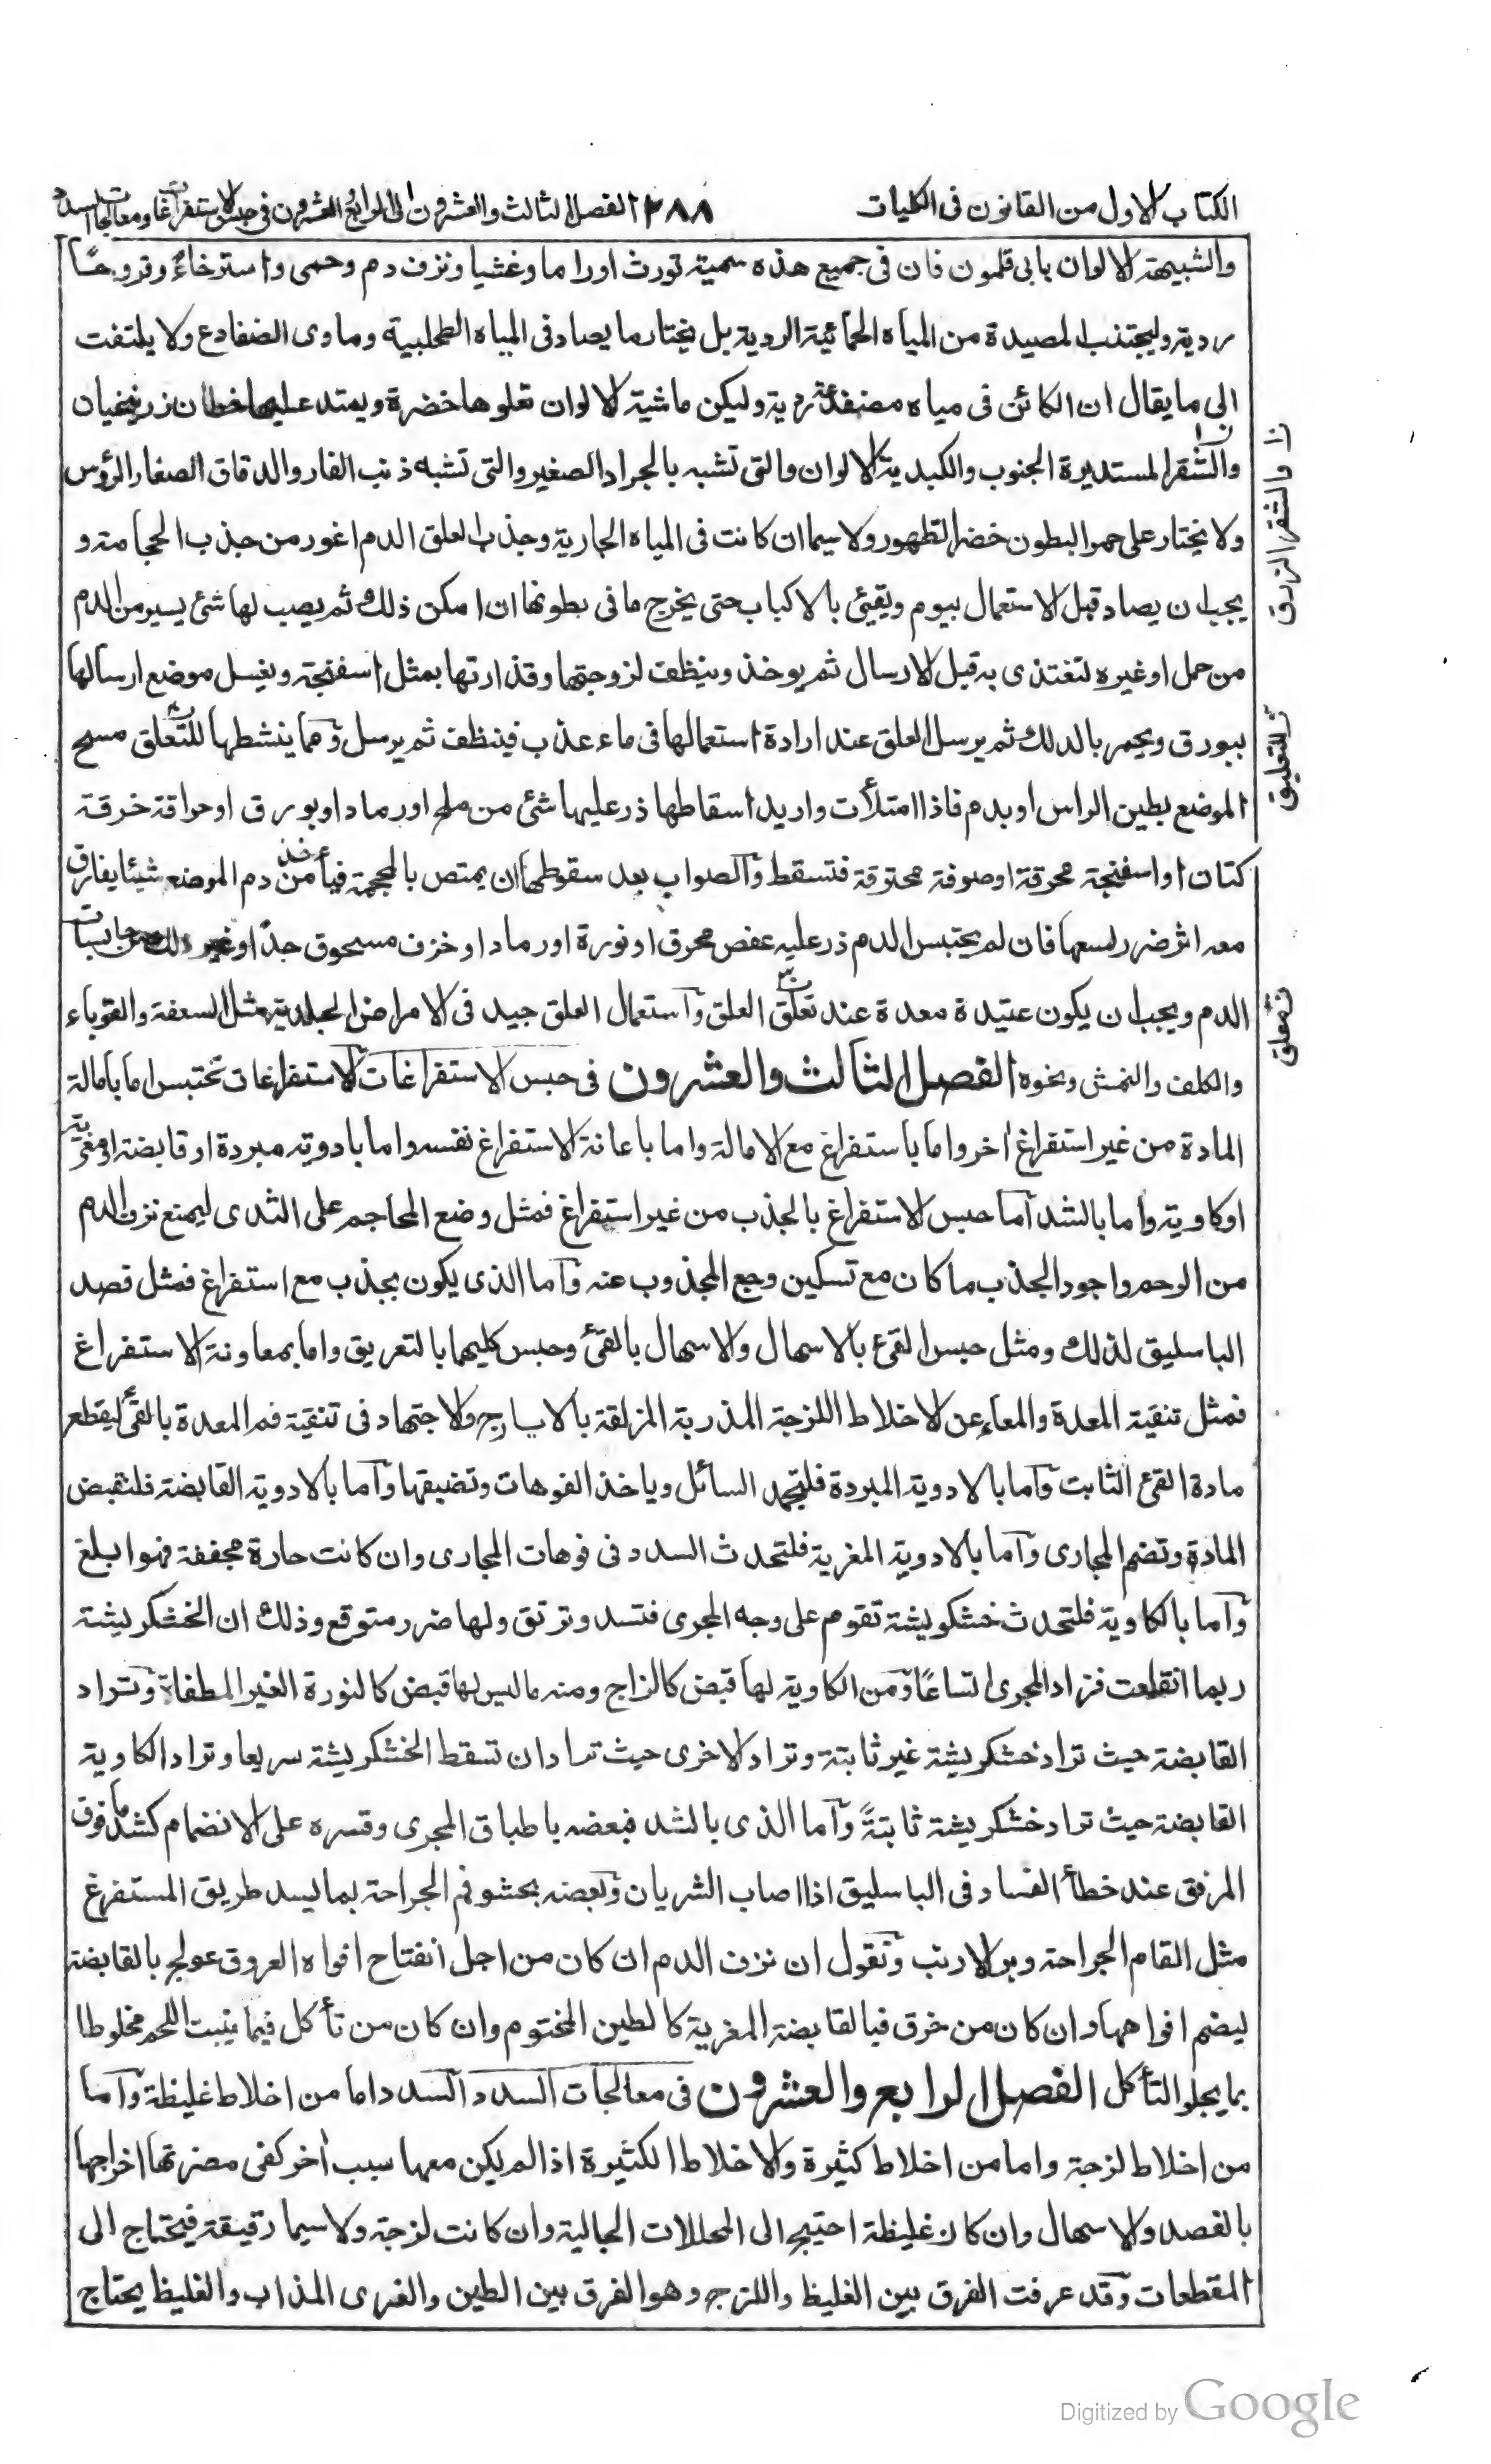 الكتاب الاول من القانون فى الكليات
٢٨٨
الفصل الثالث والعشرون الى الرابع والعشرون فى حبس الاستفراغات ومعالجات السدد
والشبيهة الالوان بابى قلمون فان فى جميع هذه سمية تورث اوراما وغشيا ونزف دم وحمى واسترخاءً وقروحًا
ردية وليجتنب المصيدة من المياه الحمائية الردية بل يختار ما يصاد فى المياه الطحلبية وماوى الضفادع ولا يلتفت
الى ما يقال ان الكائن فى مياه مضفدعة ردية وليكن ماشية الالوان تعلوها خضرة ويمتد عليها خطان زرنيخيان
والشقر المستديرة الجنوب والكبدية الالوان والتى تشبه بالجراد الصغير والتى تشبه ذنب الفار والدقاق الصغار الرؤس
ولا يختار على حمر البطون خضر الظهور ولا سيما ان كانت فى المياه الجارية وجذب العلق الدم اغور من جذب الحجامة و
يجب ان يصاد قبل الاستعمال بيوم ويقيئ بالاكباب حتى يخرج ما فى بطونها ان امكن ذلك ثم يصب لها شئ يسير من الدم
من حمل او غيره لتغتذى به قبل الارسال ثم يوخذ وينظف لزوجتها وقذارتها بمثل اسفنجة ويغسل موضع ارسالها
ببورق ويحمر بالدلك ثم يرسل العلق عند ارادة استعمالها فى ماء عذب فينظف ثم يرسل ومما ينشطها للتعلق مسح
الموضع بطين الراس او بدم فاذا امتلأت واريد اسقاطها ذر عليها شئ من ملح او رماد او بورق او حراقة خرقة
كتان او اسفنجة محرقة او صوفة محترقة فتسقط والصواب بعد سقوطها ان يمتص بالمحجمة فيأخذ من دم الموضع شيئا يفارق
معه اثر ضرر لسعها فان لم يحتبس الدم ذر عليه عفص محرق او نورة او رماد او خزف مسحوق جدًا او غير ذلك من حابسات
الدم ويجب ان يكون عتيدة معدة عند تعلق العلق واستعمال العلق جيد فى الامراض الجلدية مثل السعفة والقوباء
والكلف والنمش ونحوه الفصل الثالث والعشرون فى حبس الاستفراغات الاستفراغات تحتبس اما بامالة
المادة من غير استفراغ اخر واما باستفراغ مع الامالة واما باعانة الاستفراغ نفسه واما بادوية مبردة او قابضة او مغرية
او كاوية واما بالشد اما حبس الاستفراغ بالجذب من غير استفراغ فمثل وضع المحاجم على الثدى ليمنع نزف الدم
من الرحم واجود الجذب ما كان مع تسكين وجع المجذوب عنه واما الذى يكون بجذب مع استفراغ فمثل فصد
الباسليق لذلك ومثل حبس القئ بالاسهال والاسهال بالقئ وحبس كليهما بالتعريق واما بمعاونة الاستفراغ
فمثل تنقية المعدة والمعاء عن الاخلاط اللزجة المذربة المزلقة بالايارج والاجتهاد فى تنقية فم المعدة بالقئ ليقطع
مادة القئ الثابت واما بالادوية المبردة فلتجمد السائل وياخذ الفوهات وتضيقها واما بالادوية القابضة فلتقبض
المادة وتضم المجارى واما بالادوية المغرية فلتحدث السدد فى فوهات المجارى وان كانت حارة مجففة فهوا بلغ
واما بالكاوية فلتحدث خشكريشة تقوم على وجه المجرى فتسد وترتق ولها ضرر متوقع وذلك ان الخشكريشة
ربما انقلعت فزاد المجرى اتساعًا ومن الكاوية لها قبض كالزاج ومنه ما ليس لها قبض كالنورة الغير المطفاة وتراد
القابضة حيث تراد خشكريشة غير ثابتة وتراد الاخرى حيث تراد ان تسقط الخشكريشة سريعا وتراد الكاوية
القابضة حيث تراد خشكريشة ثابتةً واما الذى بالشد فبعضه باطباق المجرى وقسره على الانضمام كشد ما فوق
المرفق عند خطأ الفصاد فى الباسليق اذا اصاب الشريان وبعضه بحشو فم الجراحة بما يسد طريق المستفرغ
مثل القام الجراحة وبر الارنب ونقول ان نزف الدم ان كان من اجل انفتاح افواه العروق عولج بالقابضة
ليضم افواهها وان كان من خرق فبالقابضة المغرية كالطين المختوم وان كان من تأكل فبما ينبت اللحم مخلوطا
بما يجلو التأكل الفصل الرابع والعشرون فى معالجات السدد السدد اما من اخلاط غليظة واما
من اخلاط لزجة واما من اخلاط كثيرة والاخلاط الكثيرة اذا لم يكن معها سبب اخر كفى مضرتها اخراجها
بالفصد والاسهال وان كان غليظة احتيج الى المحللات الجالية وان كانت لزجة ولا سيما رقيقة فيحتاج الى
المقطعات وقد عرفت الفرق بين الغليظ واللزج وهو الفرق بين الطين والغرى المذاب والغليظ يحتاج
ن والشقر الزرق
للتعليق
تعلق
Digitized by Google